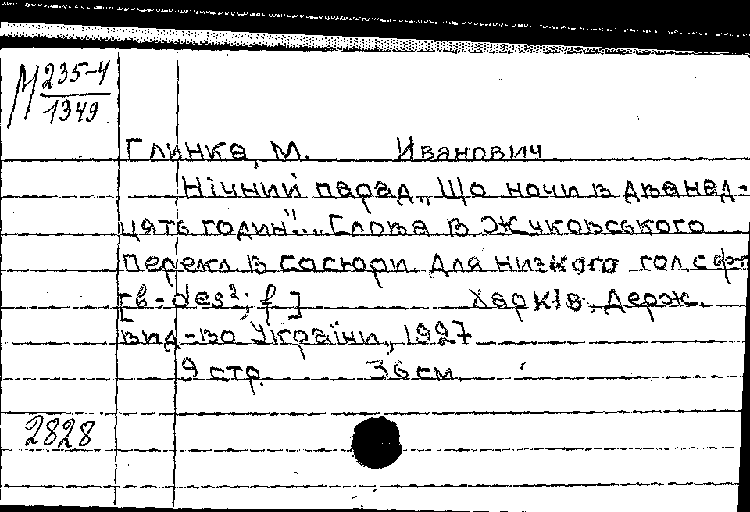 М 235-4
1349
Глинка, М. Иванович
Нічний парад „Що ночи в дванад-
цять годин"... Слова В Жуковського
перекл В Сосюри. Для низкого гол с фп
[b - des²; f] Харків, Держ.
вид-во України, 1927
9 стр. 36 см.
2828